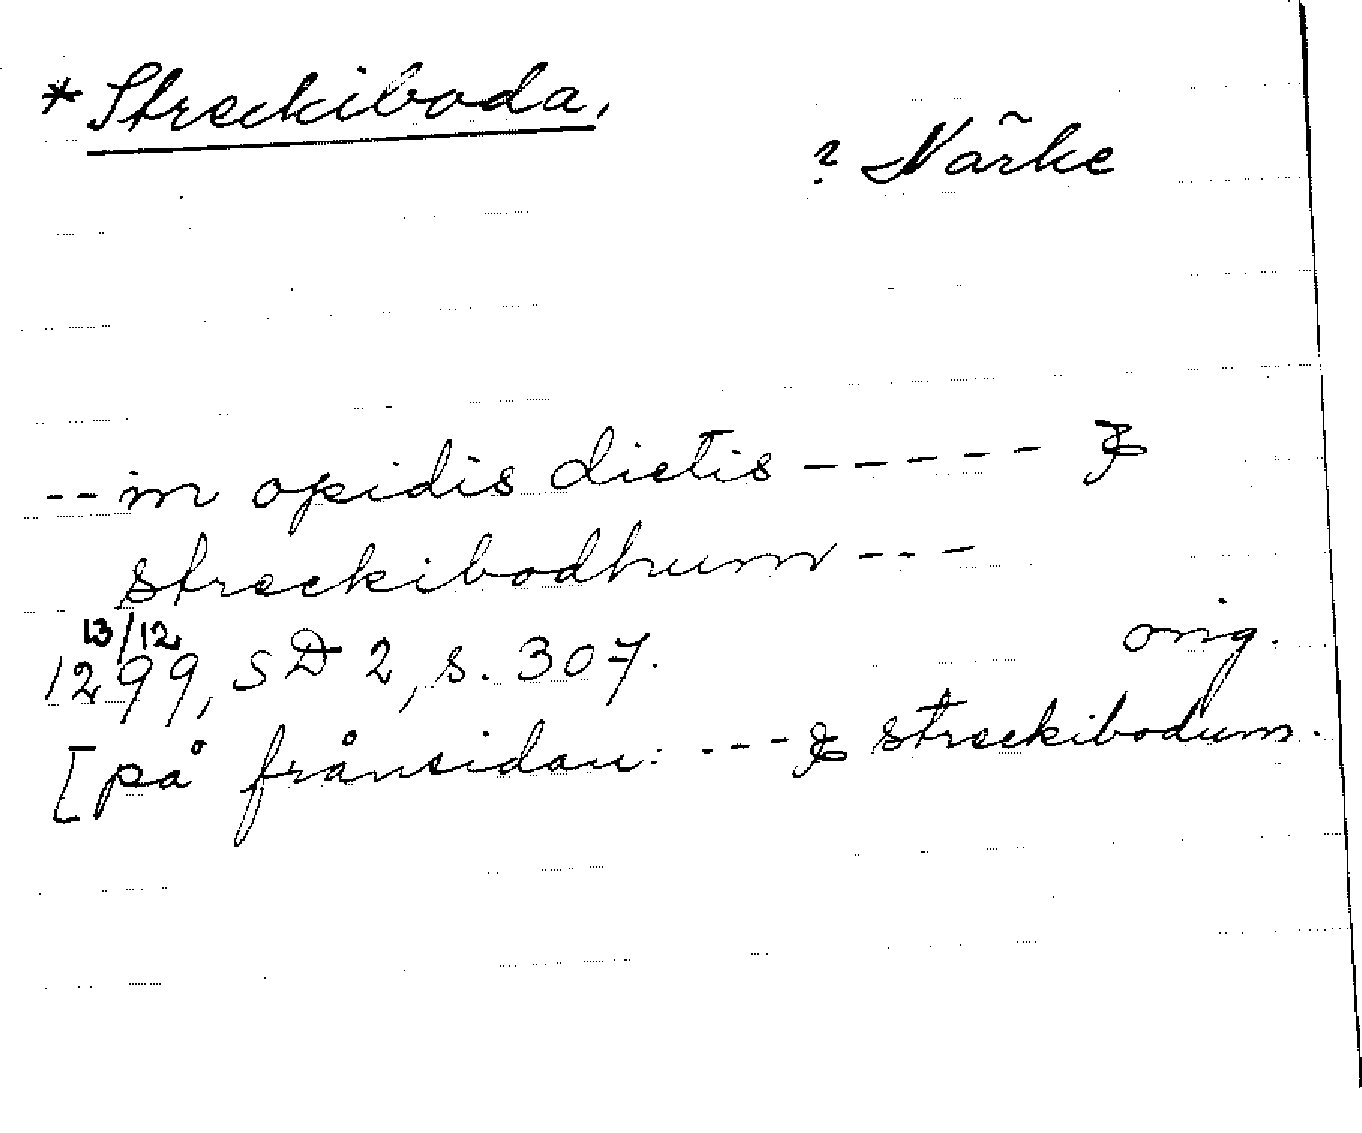 *Streckiboda,
? Närke
-- in opidis dictis ----- &
streckibodhum ---
13/12
1299, SD 2, s. 307. orig.
[på frånsidan: --- & streckibodum.